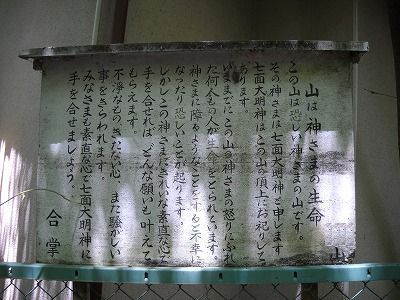 山は神さまの生命
この山は恐しい神さまの山です。
その神さまは七面大明神と申します
七面大明神はこの山の頂上にお祀りして
あります。
いままでにこの山の神さまの怒りにふれ
た何人もの人が生命をとられています。
神さまに障るようなことをすると不幸に
なったり恐しいことが起ります。
しかしこの神さまにきれいな素直な心で
手を合せれば、どんな願いも叶えて
もらえます。
不浄なもの、きたない心、また騒がしい
事をきらわれます。
みなさまも素直な心で七面大明神に
手を合せましょう。
合掌
山